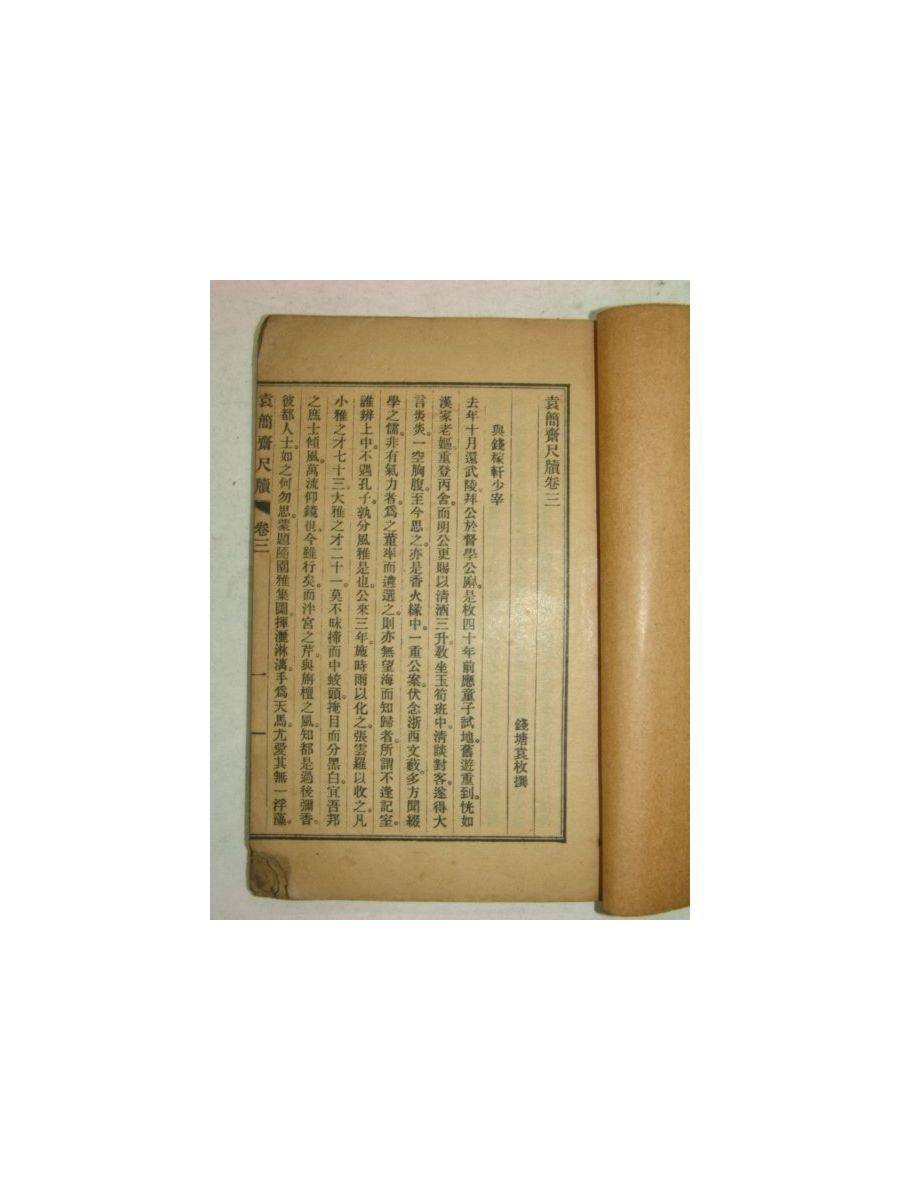 袁簡齋尺牘卷三
錢塘袁枚撰
與錢稼軒少宰
去年十月還武陵拜公於督學公廨。是枚四十年前應童子試地。舊遊重到。恍如
漢家老嫗。重登丙舍。而明公更賜以清酒三升。敎坐玉筍班中。清談對客。遂得大
言炎炎。一空胸腹。至今思之。亦是香火緣中。一重公案。伏念浙西文藪。多方聞綴
學之儒。非有氣力者。爲之董率而遴選之。則亦無望海而知歸者。所謂不逢記室。
誰辨上中。不遇孔子。孰分風雅是也。公來三年。施時雨以化之。張雲羅以收之。凡
小雅之才七十三。大雅之才二十一。莫不昧揥而中蛟頭。掩目而分黑白。宜吾邦
之庶士傾風。萬流仰鏡也。今雖行矣。而泮宮之芹。與旃檀之風。知都是過後彌香。
彼都人士。如之何勿思。蒙題隨園雅集圖。揮灑淋漓。手爲天馬。尤愛其無一浮藻。
袁簡齋尺牘 卷三 一